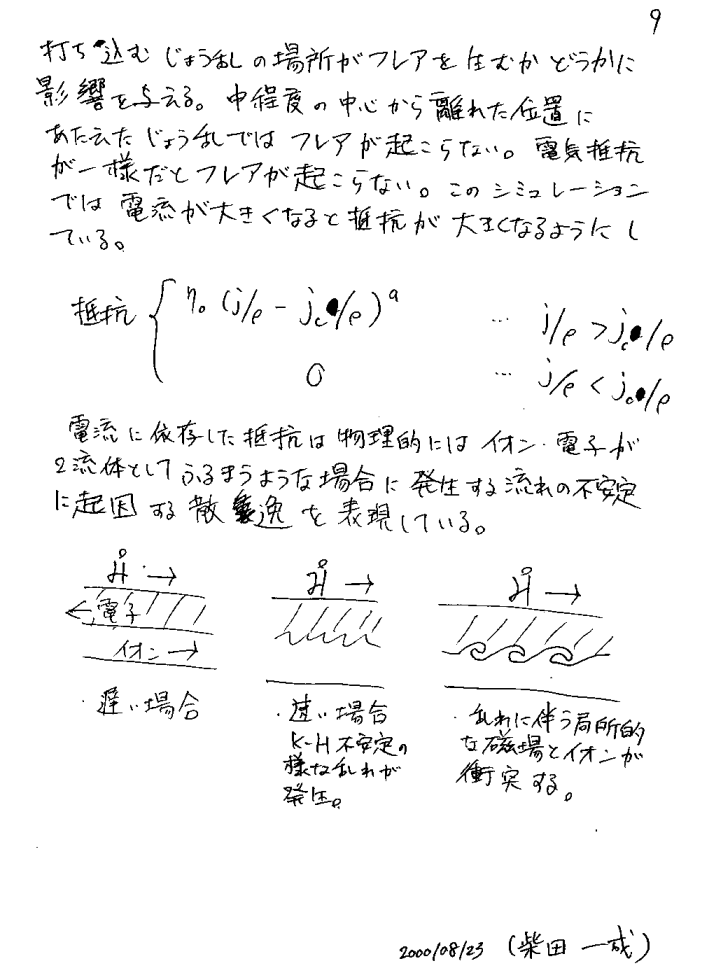 9
打ち込むじょう乱の場所がフレアを生むかどうかに
影響を与える。中程度の中心から離れた位置に
あたえたじょう乱ではフレアが起こらない。電気抵抗
が一様だとフレアが起こらない。このシミュレーション
では電流が大きくなると抵抗が大きくなるようにし
ている。
抵抗 { η₀ (j/ρ - jc/ρ)^a … j/ρ > jc/ρ
0 … j/ρ < jc/ρ
電流に依存した抵抗は物理的にはイオン・電子が
2流体としてふるまうような場合に発生する流れの不安定
に起因する散逸を表現している。
→ → →
← 電子
イオン →
・遅い場合
・速い場合
K-H不安定の
様な乱れが
発生。
・乱れに伴う局所的
な磁場とイオンが
衝突する。
2000/08/23 (柴田 一成)